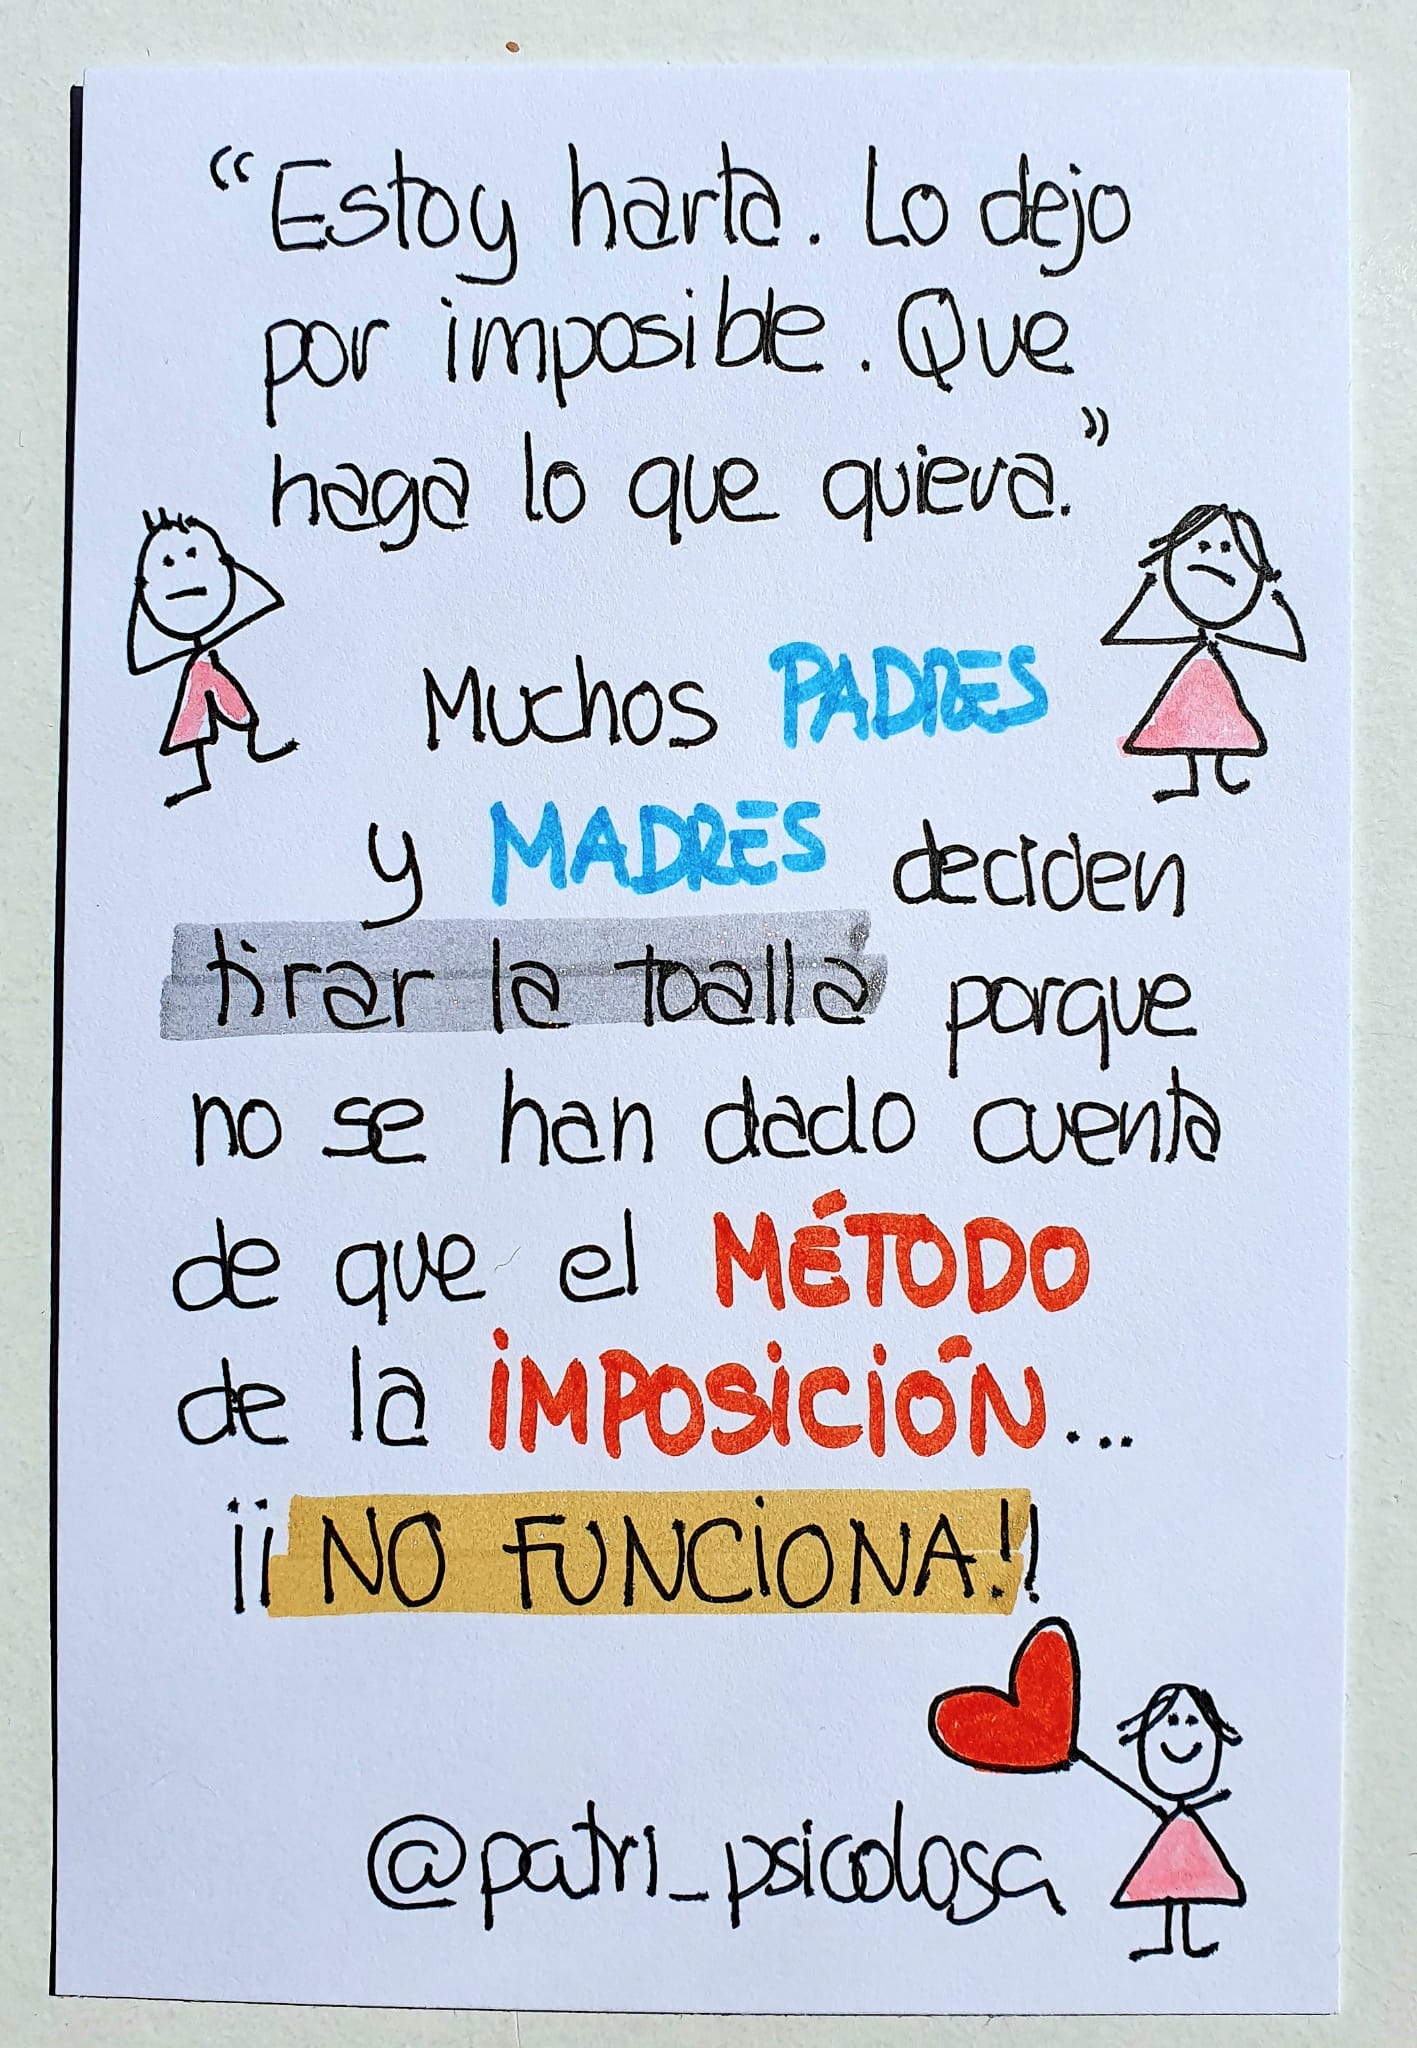 "Estoy harta. Lo dejo
por imposible. Que
haga lo que quiera."
Muchos PADRES
y MADRES deciden
tirar la toalla porque
no se han dado cuenta
de que el MÉTODO
de la IMPOSICIÓN...
¡¡NO FUNCIONA!!
@patri_psicologa